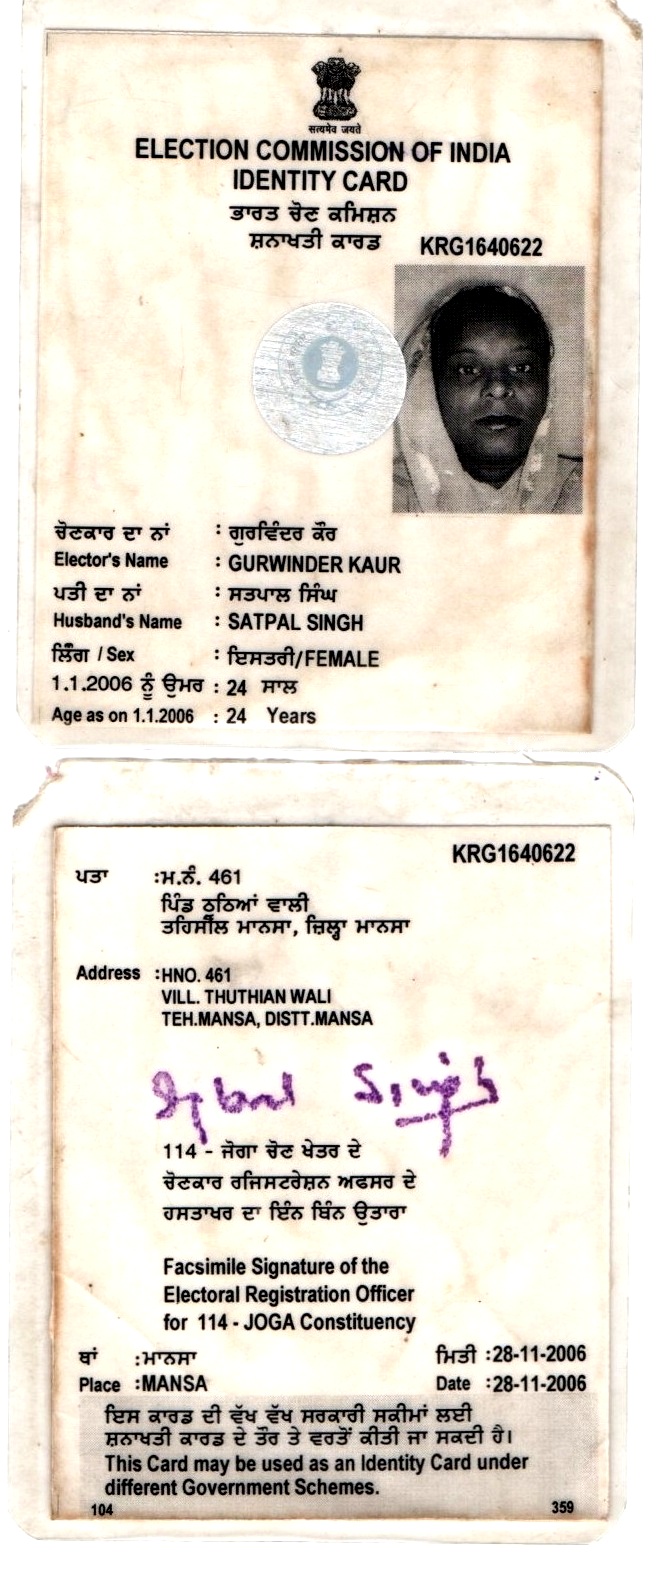 सत्यमेव जयते
ELECTION COMMISSION OF INDIA
IDENTITY CARD
ਭਾਰਤ ਚੋਣ ਕਮਿਸ਼ਨ
ਸ਼ਨਾਖਤੀ ਕਾਰਡ
KRG1640622
ਚੋਣਕਾਰ ਦਾ ਨਾਂ : ਗੁਰਵਿੰਦਰ ਕੌਰ
Elector's Name : GURWINDER KAUR
ਪਤੀ ਦਾ ਨਾਂ : ਸਤਪਾਲ ਸਿੰਘ
Husband's Name : SATPAL SINGH
ਲਿੰਗ / Sex : ਇਸਤਰੀ/FEMALE
1.1.2006 ਨੂੰ ਉਮਰ : 24 ਸਾਲ
Age as on 1.1.2006 : 24 Years
KRG1640622
ਪਤਾ :ਮ.ਨੰ. 461
ਪਿੰਡ ਠੂਠਿਆਂ ਵਾਲੀ
ਤਹਿਸੀਲ ਮਾਨਸਾ, ਜ਼ਿਲ੍ਹਾ ਮਾਨਸਾ
Address :HNO. 461
VILL. THUTHIAN WALI
TEH.MANSA, DISTT.MANSA
Singh
114 - ਜੋਗਾ ਚੋਣ ਖੇਤਰ ਦੇ
ਚੋਣਕਾਰ ਰਜਿਸਟਰੇਸ਼ਨ ਅਫਸਰ ਦੇ
ਹਸਤਾਖਰ ਦਾ ਇੰਨ ਬਿੰਨ ਉਤਾਰਾ
Facsimile Signature of the
Electoral Registration Officer
for 114 - JOGA Constituency
ਥਾਂ :ਮਾਨਸਾ ਮਿਤੀ :28-11-2006
Place :MANSA Date :28-11-2006
ਇਸ ਕਾਰਡ ਦੀ ਵੱਖ ਵੱਖ ਸਰਕਾਰੀ ਸਕੀਮਾਂ ਲਈ
ਸ਼ਨਾਖਤੀ ਕਾਰਡ ਦੇ ਤੌਰ ਤੇ ਵਰਤੋਂ ਕੀਤੀ ਜਾ ਸਕਦੀ ਹੈ।
This Card may be used as an Identity Card under
different Government Schemes.
104 359